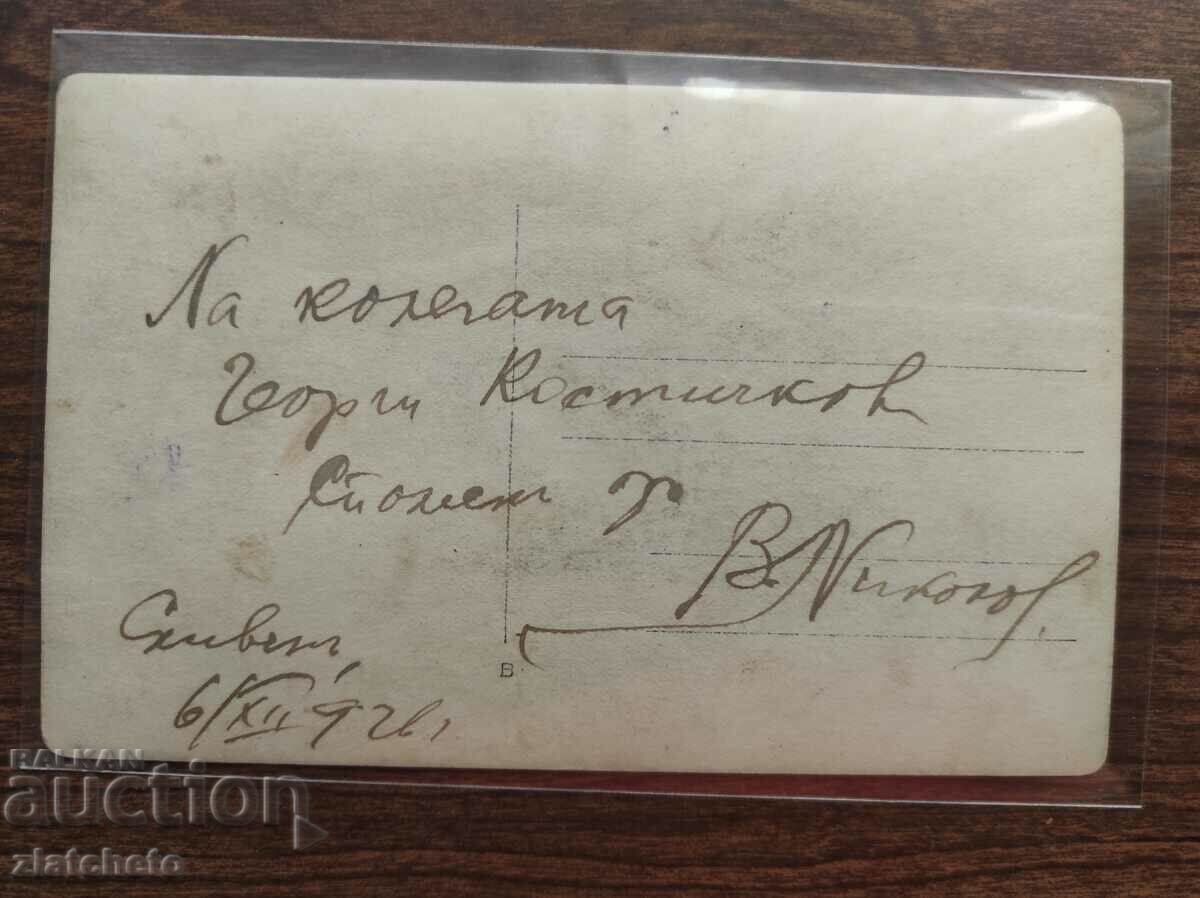 На колегата
Георги Костичков
Спомен
В. Николов
Сливен,
6/XII 926 г
В
BALKAN
auction
zlatcheto